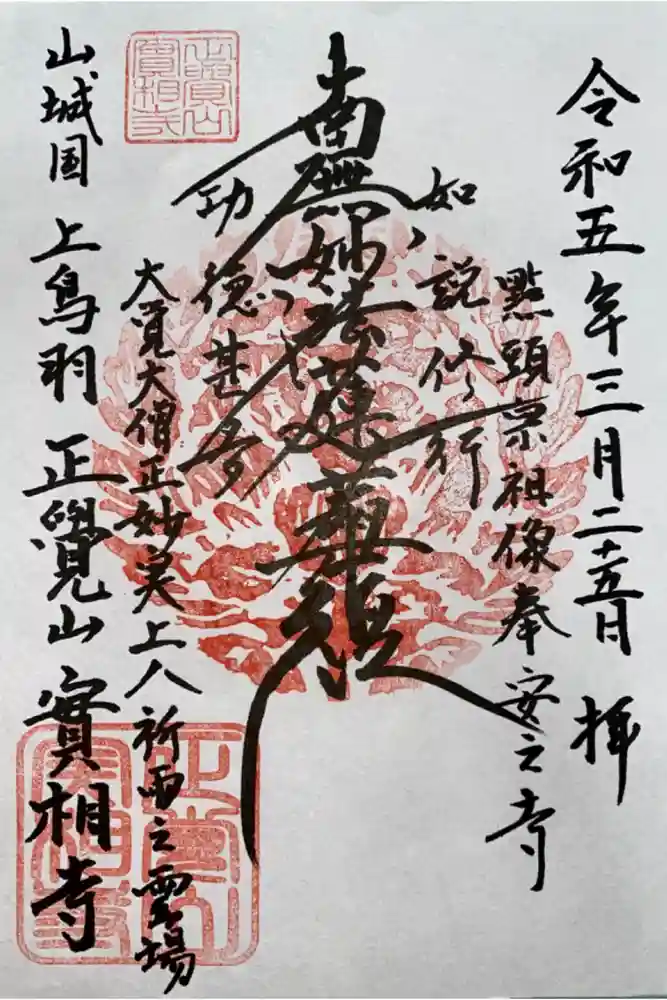 令和五年三月二十五日 拝
點頭宗祖像奉安之寺
如説修行
南無妙法蓮華経
功徳甚多
大覚大僧正妙実上人祈雨之霊場
山城国 上鳥羽 正覺山 實相寺
正覺山
實相寺